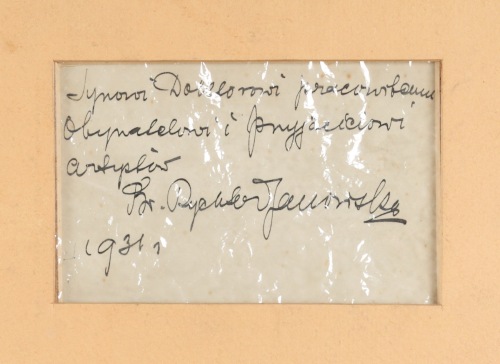 Synowi Doktorowi pracowitemu
Obywatelowi i Przyjacielowi
artystów
Br. Rychter Janowska
1931 r